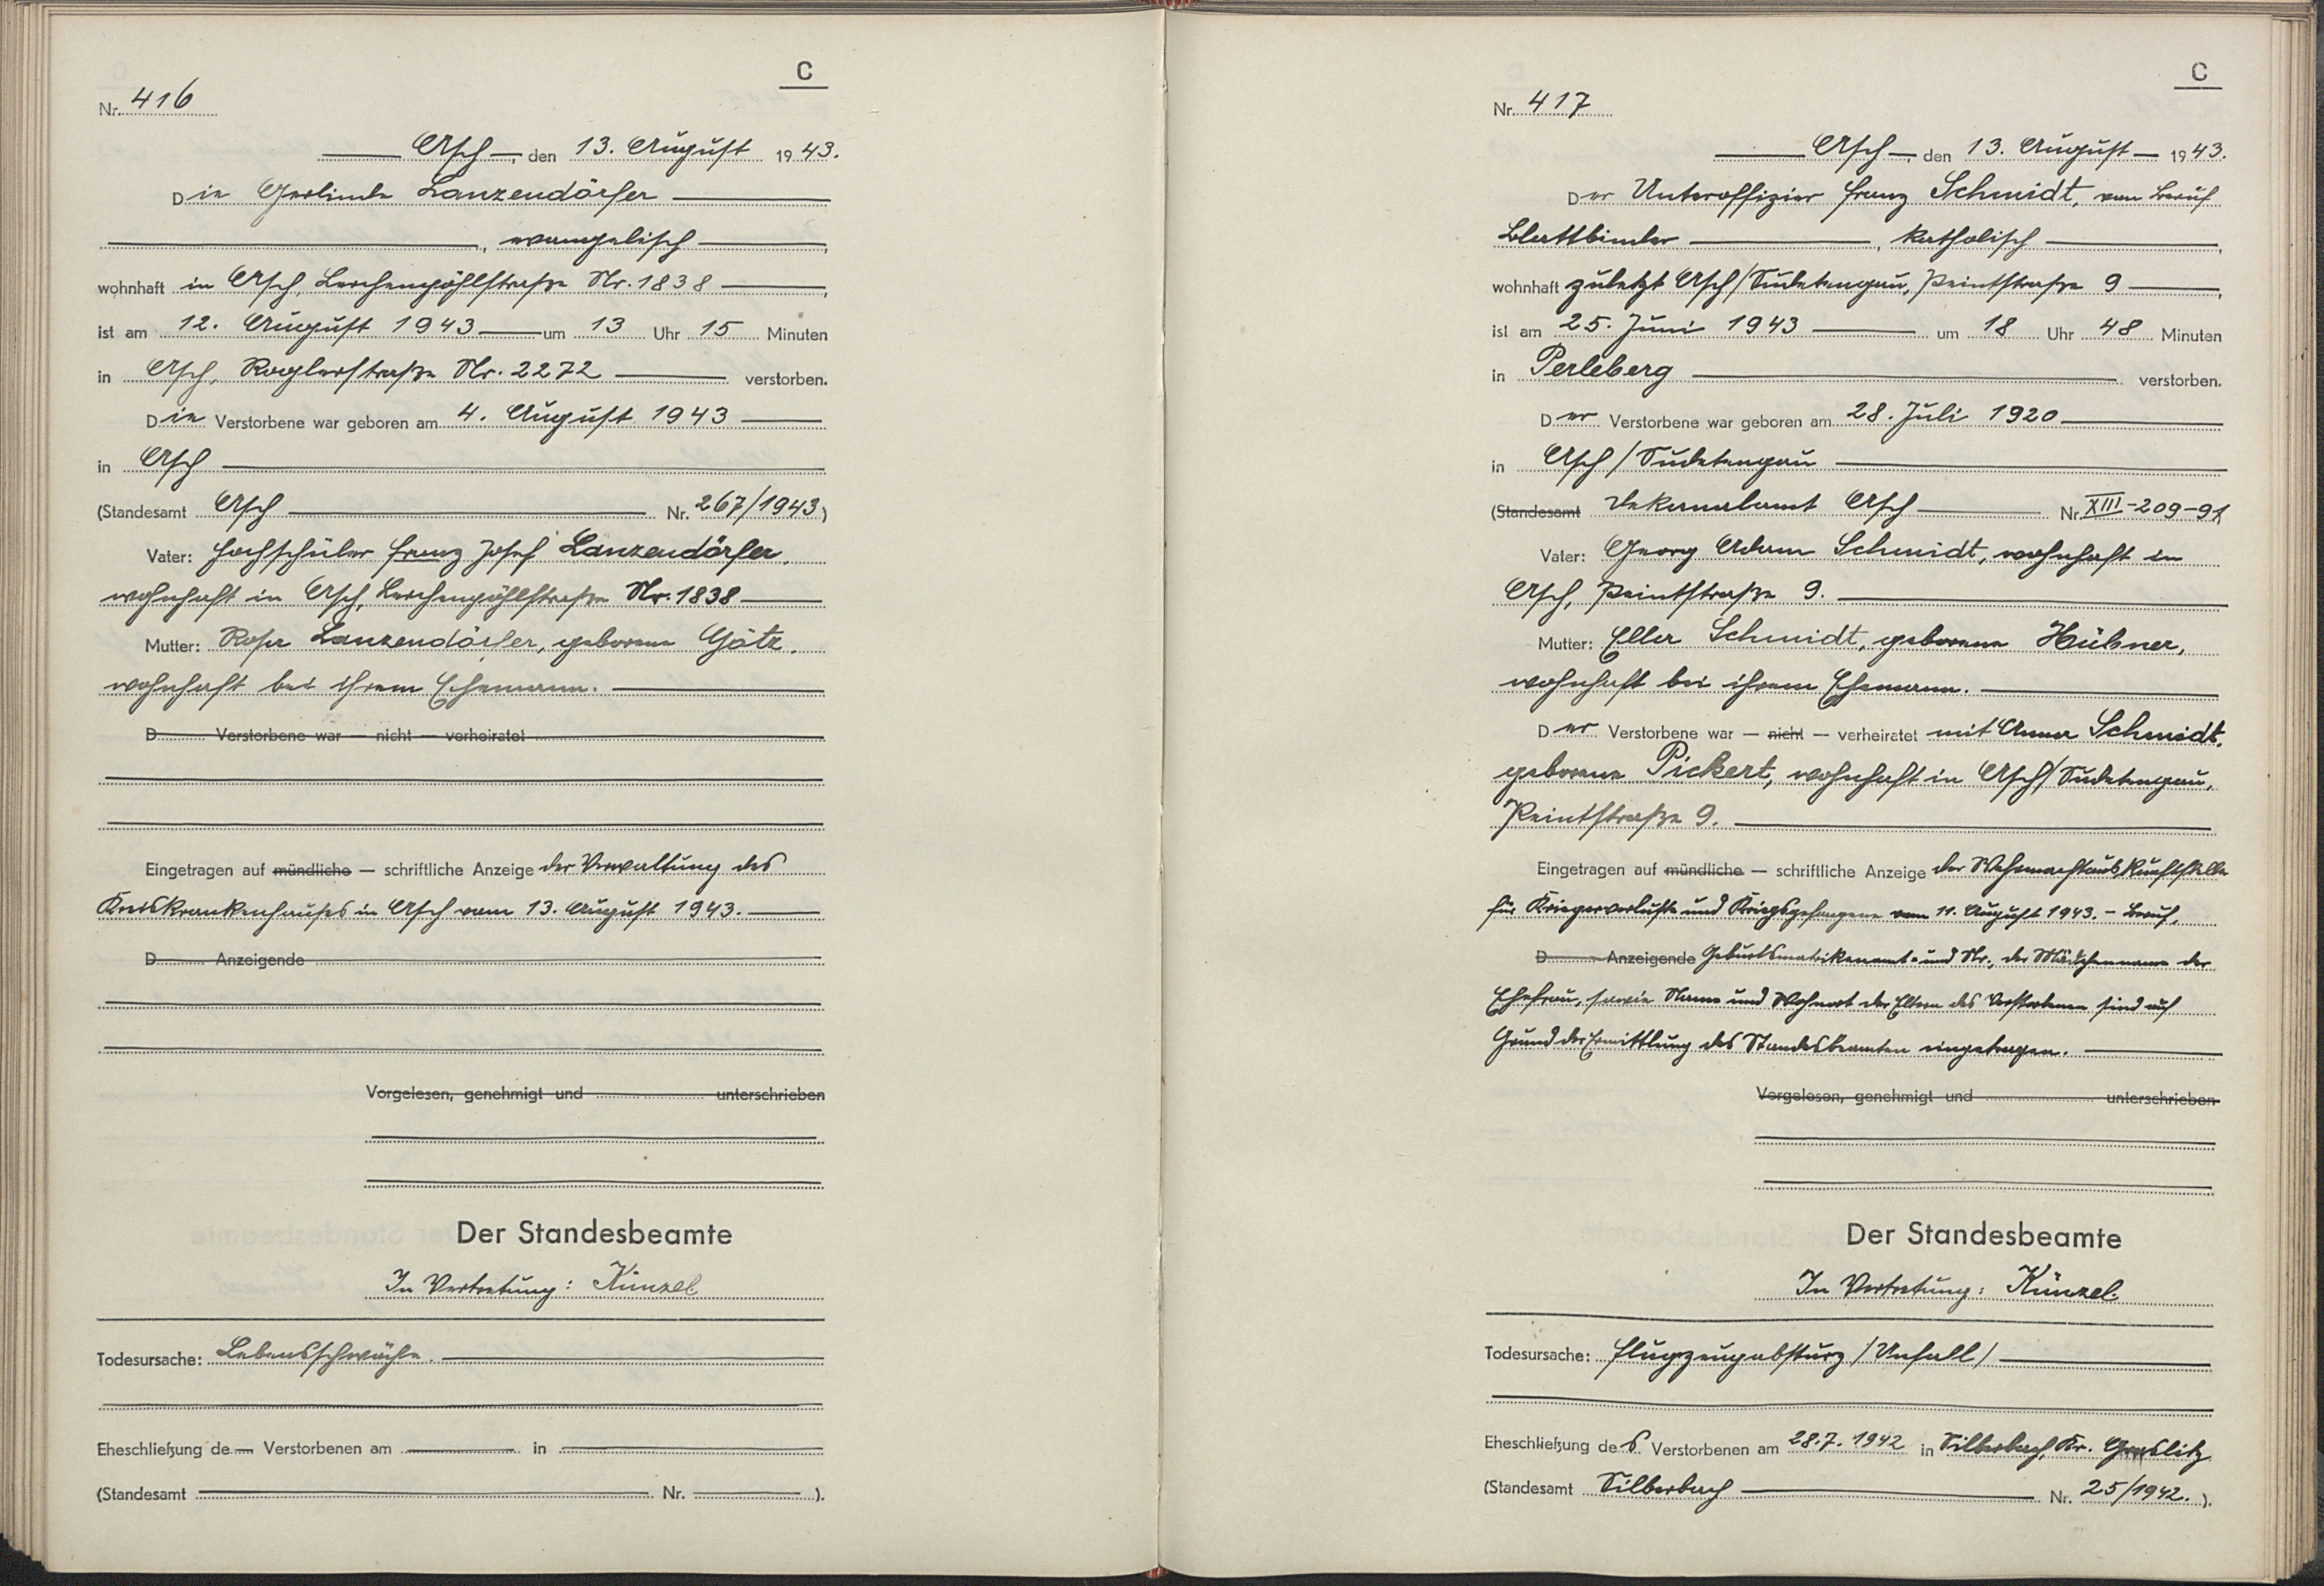 C
Nr. 416
Asch, den 13. August 1943.
Die Gerlinde Lanzendörfer
, evangelisch,
wohnhaft in Asch, Lerchenpöhlstraße Nr. 1838,
ist am 12. August 1943 um 13 Uhr 15 Minuten
in Asch, Roglerstraße Nr. 2272 verstorben.
Die Verstorbene war geboren am 4. August 1943
in Asch
(Standesamt Asch Nr. 267/1943)
Vater: Hochschüler Franz Josef Lanzendörfer,
wohnhaft in Asch, Lerchenpöhlstraße Nr. 1838
Mutter: Rosa Lanzendörfer, geborene Götz,
wohnhaft bei ihrem Ehemann.
D Verstorbene war — nicht — verheiratet
Eingetragen auf mündliche — schriftliche Anzeige der Verwaltung des
Kreiskrankenhauses in Asch vom 13. August 1943.
D Anzeigende
Vorgelesen, genehmigt und unterschrieben
Der Standesbeamte
In Vertretung: Künzel
Todesursache: Lebensschwäche.
Eheschließung de Verstorbenen am in
(Standesamt Nr. ).
C
Nr. 417
Asch, den 13. August 1943.
Der Unteroffizier Franz Schmidt, von Beruf
Blattbinder, katholisch,
wohnhaft zuletzt Asch/Sudetengau, Peintstraße 9,
ist am 25. Juni 1943 um 18 Uhr 48 Minuten
in Perleberg verstorben.
Der Verstorbene war geboren am 28. Juli 1920
in Asch/Sudetengau
(Standesamt Dekanalamt Asch Nr. XIII-209-91
Vater: Georg Adam Schmidt, wohnhaft in
Asch, Peintstraße 9.
Mutter: Ella Schmidt, geborene Hübner,
wohnhaft bei ihrem Ehemann.
Der Verstorbene war — nicht — verheiratet mit Anna Schmidt,
geborene Pickert, wohnhaft in Asch/Sudetengau,
Peintstraße 9.
Eingetragen auf mündliche — schriftliche Anzeige der Wehrmachtauskunftstelle
für Kriegerverluste und Kriegsgefangene vom 11. August 1943. - Beruf,
D Anzeigende Geburtsmatrikenamt und Nr., der Mädchenname der
Ehefrau, sowie Name und Wohnort der Eltern des Verstorbenen sind auf
Grund der Ermittlung des Standesbeamten eingetragen.
Vorgelesen, genehmigt und unterschrieben
Der Standesbeamte
In Vertretung: Künzel.
Todesursache: Flugzeugabsturz /Unfall/
Eheschließung des Verstorbenen am 28.7.1942 in Silberbach, Kr. Graslitz
(Standesamt Silberbach Nr. 25/1942.).